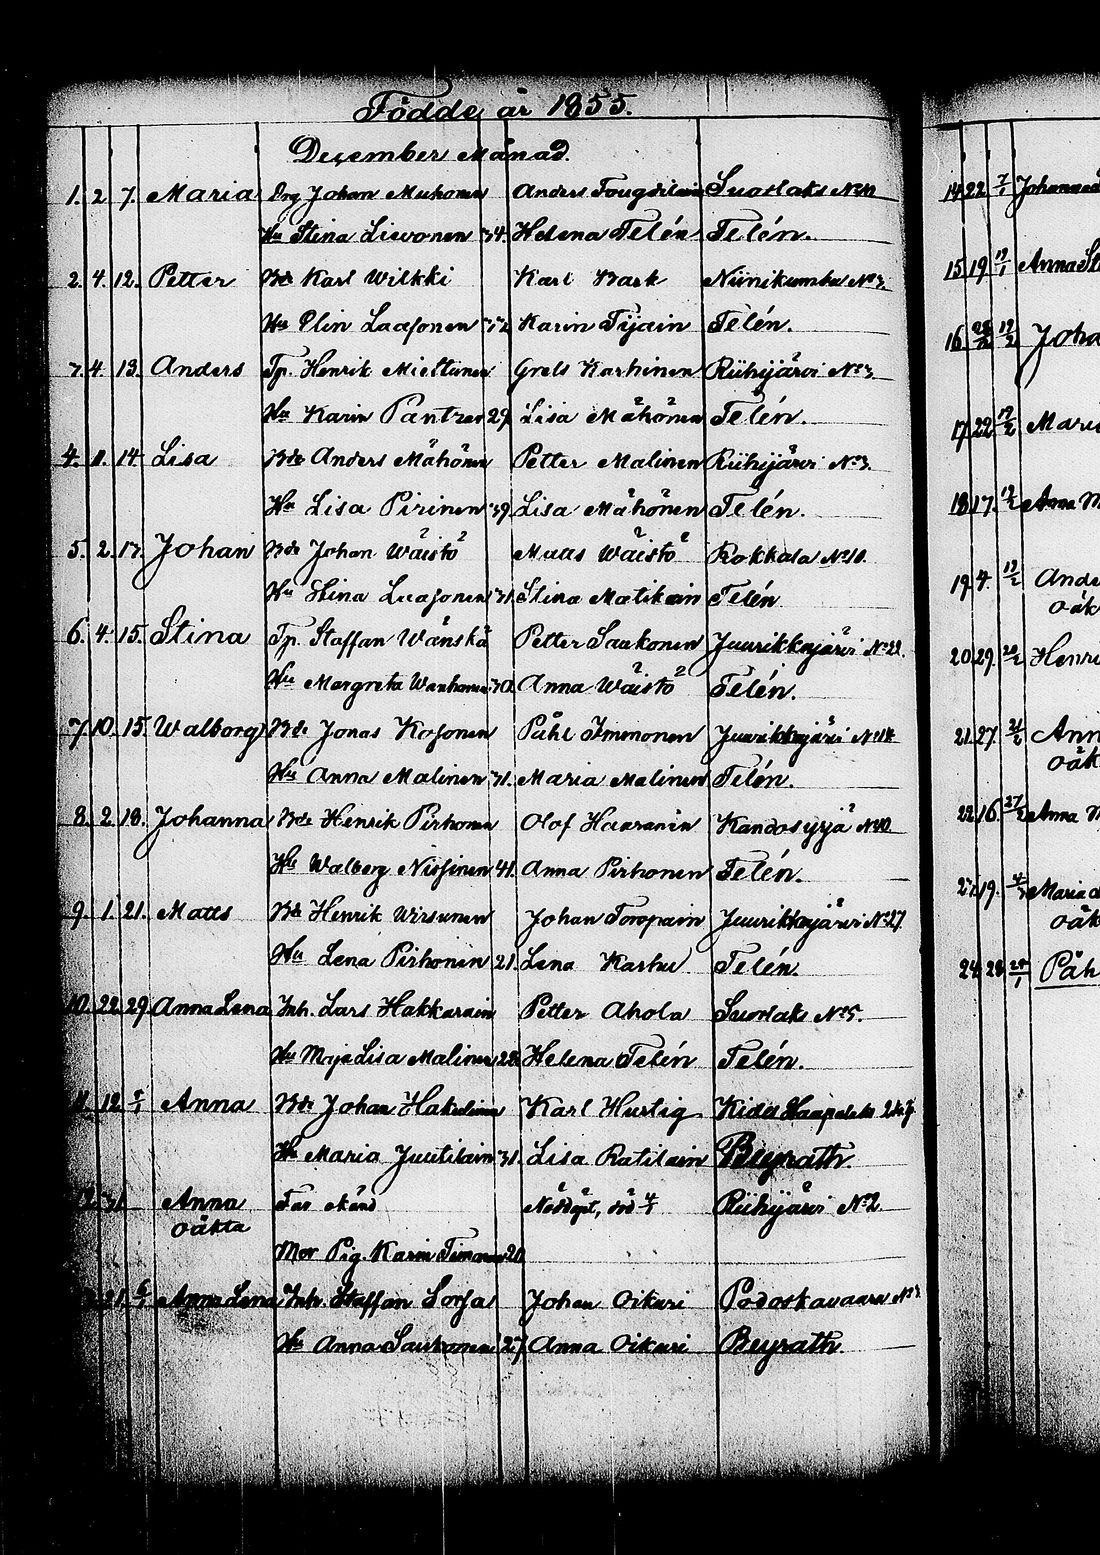 Födde år 1855.
December Månad.
1. 2. 7. Maria Drg Johan Muhonen Anders Suorlaks No
Hu Stina Liwonen 34. Helena Telén Telén.
2. 4. 12. Petter Bde Karl Wilkki Karl Bark No 3.
Hu Elin Laasonen 32 Karin Tijain Telén.
3. 4. 13. Anders Tp. Henrik Miettunen Grels Karhinen Riihijärvi No 3.
Hu Karin Pantzer 29. Lisa Mähönen Telén.
4. 11. 14. Lisa Bde Anders Mähönen Petter Malinen Riihijärvi No 3.
Hu Lisa Pirinen 39. Lisa Mähönen Telén.
5. 2. 17. Johan Bde Johan Wäistö Matts Wäistö Kokkala No 10.
Hu Stina Laasonen 31. Stina Matikain Telén
6. 4. 15. Stina Tp. Staffan Wänskä Petter Saukonen Juurikkajärvi No 22.
Hu Margreta Wanhanen 30. Anna Wäistö Telén.
7. 10. 15. Walborg Bde Jonas Kosonen Påhl Immonen Juurikkajärvi No 14
Hu Anna Malinen 31. Maria Malinen Telén.
8. 2. 18. Johanna Bde Henrik Pirhonen Olof Haaranin No 10.
Hu Walborg Nissinen 41. Anna Pirhonen Telén.
9. 1. 21. Matts Bde Henrik Wirsunen Johan Toropain Juurikkajärvi No 27.
Hu Lena Pirhonin 21. Lena Karhu Telén.
10. 22. 29. Anna Lena Inh. Lars Hakkarain Petter Ahola Suorlaks No 5.
Hu Maja Lisa Malinen 28. Helena Telén Telén.
11. 12. Anna Bde Johan Hakulinen Karl Hurtig Kides Haapalaks
Hu Maria Juutilain 31. Lisa Ratilain Beyrath.
12. 31. Anna Far okänd Nöddöpt, död 4/1 Riihijärvi No 2.
oäkta
Mor Pig. Karin Timonen 20.
21. 6/1 Anna Lena Inh. Staffan Sorsa Johan Oikari Podoskavaara No
Hu Anna Saukonen 27. Anna Oikari Beyrath.
14. 22. 7/1 Johannes
15. 19. Anna St
16. Joha
17. 22. Mari
18. 17. Anna M
19. 4. Ande
oäk
20. 29. Henri
21. 27. Ann
oäk
22. 16. Anna M
19. Maria
oäk
24. 28. Påh